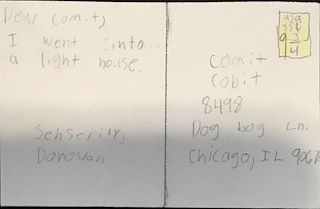 Dear comit,
I went into
a light house.
Sehserily,
Donovan
usa
Comit
Cobit
8498
Dog bog Ln.
Chicago, IL